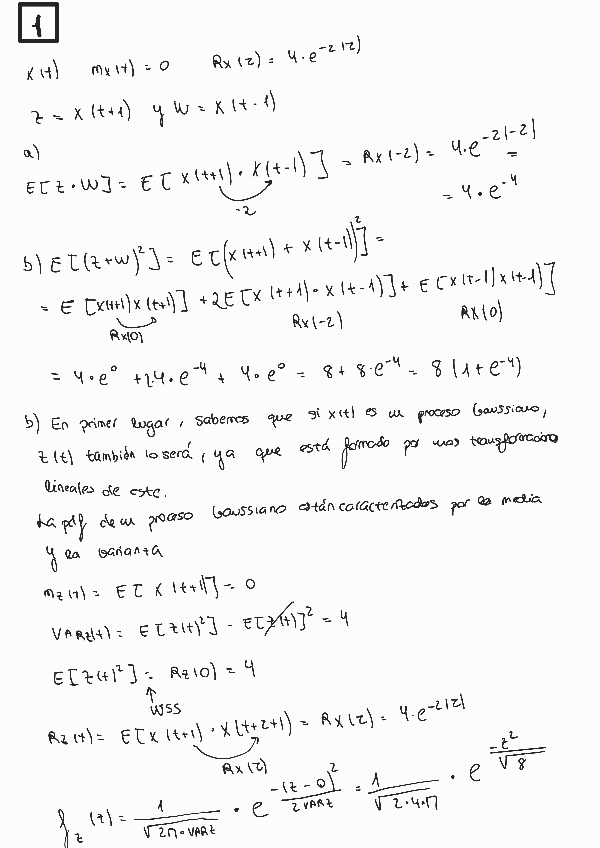 1
X(t) mx(t) = 0 Rx(τ) = 4·e^-2|τ|
Z = X(t+1) y W = X(t-1)
a)
E[Z·W] = E[X(t+1)·X(t-1)] = Rx(-2) = 4·e^-2|-2| =
-2
= 4·e^-4
b) E[(Z+W)^2] = E[(X(t+1) + X(t-1))^2] =
= E[X(t+1)X(t+1)] + 2E[X(t+1)·X(t-1)] + E[X(t-1)X(t-1)]
Rx(0) Rx(-2) Rx(0)
= 4·e^0 + 2·4·e^-4 + 4·e^0 = 8 + 8·e^-4 = 8(1+e^-4)
b) En primer lugar, sabemos que si X(t) es un proceso Gaussiano,
Z(t) también lo será, ya que está formado por unas transformaciones
lineales de este.
La pdf de un proceso Gaussiano están caracterizados por la media
y la varianza
mz(t) = E[X(t+1)] = 0
VARz(t) = E[Z(t)^2] - E[Z(t)]^2 = 4
E[Z(t)^2] = Rz(0) = 4
↑
WSS
Rz(t) = E[X(t+1)·X(t+τ+1)] = Rx(τ) = 4·e^-2|τ|
Rx(τ)
fz(t) = 1/√(2π·VARz) · e^(-(z-0)^2/2VARz) = 1/√(2·4·π) · e^(-z^2/√8)